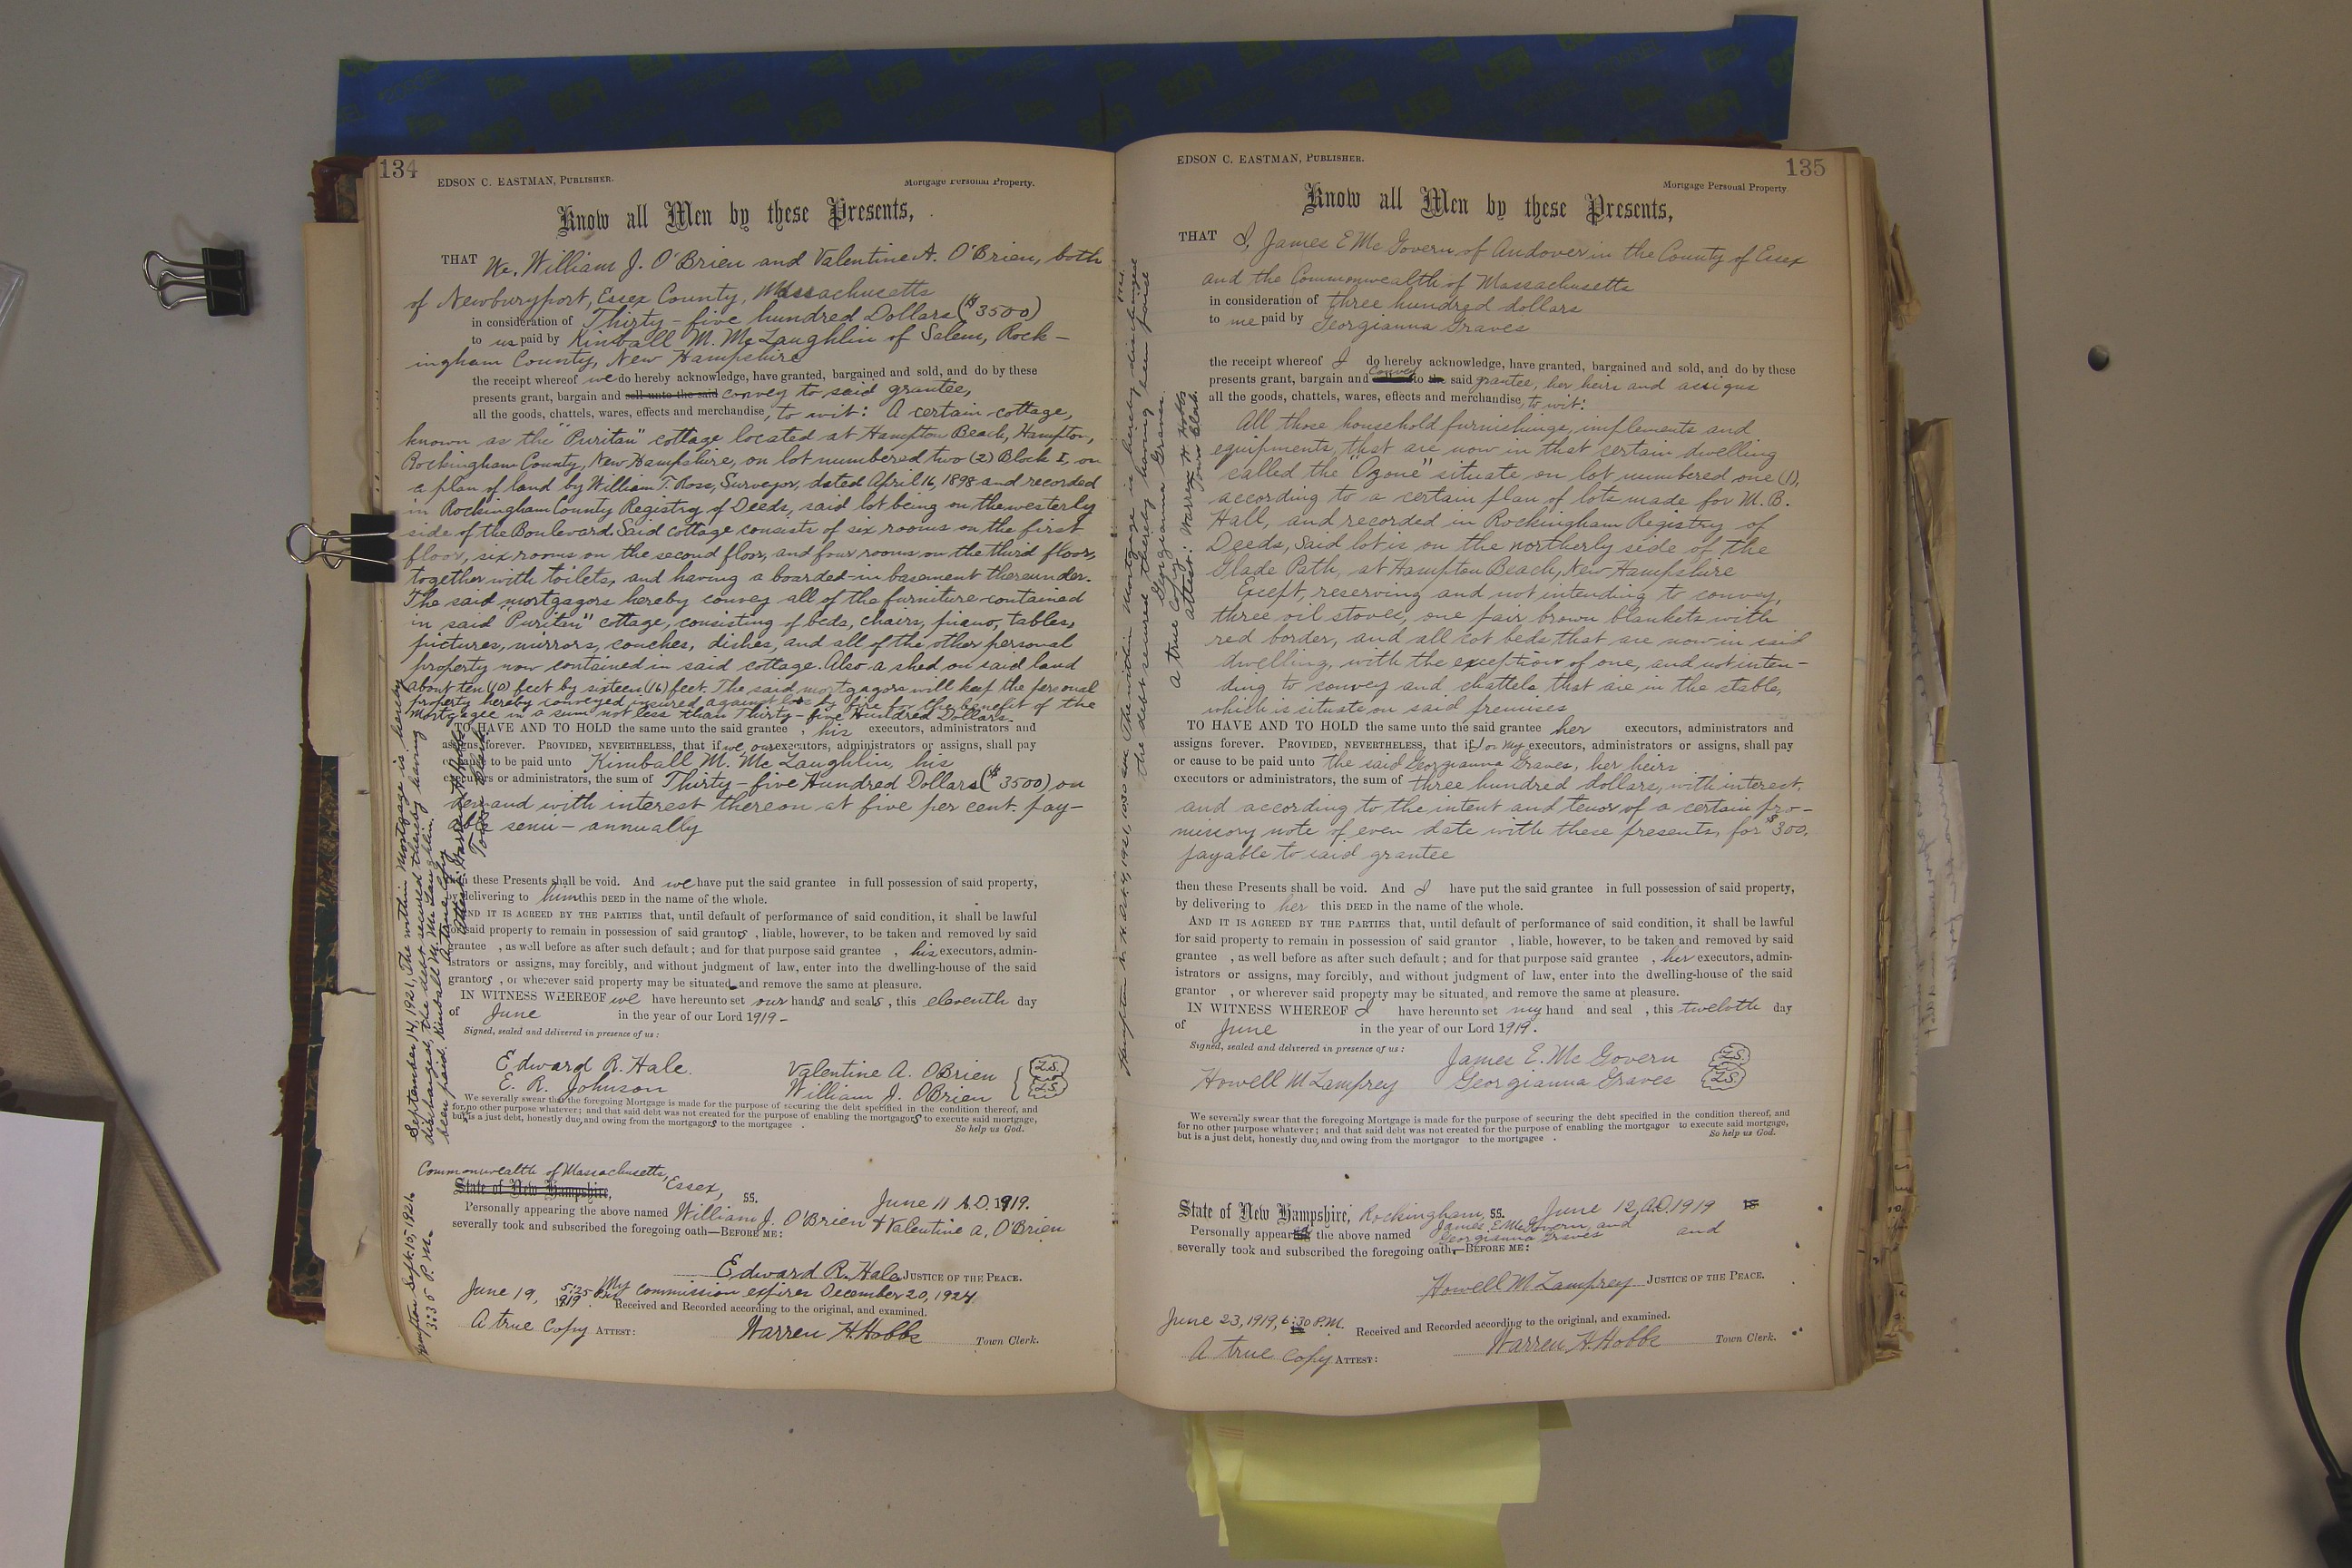 134
EDSON C. EASTMAN, PUBLISHER.
Mortgage Personal Property.
Know all Men by these Presents,
THAT We, William J. O'Brien and Valentine A. O'Brien, both
of Newburyport, Essex County, Massachusetts
in consideration of Thirty-five hundred Dollars ($3500)
to us paid by Kimball M. McLaughlin of Salem, Rock-
ingham County, New Hampshire
the receipt whereof we do hereby acknowledge, have granted, bargained and sold, and do by these
presents grant, bargain and sell unto the said convey to said grantee,
all the goods, chattels, wares, effects and merchandise, to wit: A certain cottage,
known as the "Puritan" cottage located at Hampton Beach, Hampton,
Rockingham County, New Hampshire, on lot numbered two (2) Block I, on
a plan of land by William T. Ross, Surveyor, dated April 16, 1898 and recorded
in Rockingham County Registry of Deeds, said lot being on the westerly
side of the Boulevard. Said cottage consists of six rooms on the first
floor, six rooms on the second floor, and four rooms on the third floor,
together with toilets, and having a boarded-in basement thereunder.
The said mortgagors hereby convey all of the furniture contained
in said "Puritan" cottage, consisting of beds, chairs, piano, tables,
pictures, mirrors, couches, dishes, and all of the other personal
property now contained in said cottage. Also a shed on said land
about ten (10) feet by sixteen (16) feet. The said mortgagors will keep the personal
property hereby conveyed insured against loss by fire for the benefit of the
mortgagee in a sum not less than Thirty-five Hundred Dollars.
TO HAVE AND TO HOLD the same unto the said grantee, his executors, administrators and
assigns forever. PROVIDED, NEVERTHELESS, that if we, our executors, administrators or assigns, shall pay
to be paid unto Kimball M. McLaughlin, his
executors or administrators, the sum of Thirty-five Hundred Dollars ($3500) on
demand with interest thereon at five per cent. pay-
able semi-annually
then these Presents shall be void. And we have put the said grantee in full possession of said property,
by delivering to him this DEED in the name of the whole.
AND IT IS AGREED BY THE PARTIES that, until default of performance of said condition, it shall be lawful
for said property to remain in possession of said grantors, liable, however, to be taken and removed by said
grantee, as well before as after such default; and for that purpose said grantee, his executors, admin-
istrators or assigns, may forcibly, and without judgment of law, enter into the dwelling-house of the said
grantors, or wherever said property may be situated, and remove the same at pleasure.
IN WITNESS WHEREOF we have hereunto set our hands and seals, this eleventh day
of June in the year of our Lord 1919-
Signed, sealed and delivered in presence of us:
Edward R. Hale. Valentine A. O'Brien L.S.
E. R. Johnson William J. O'Brien L.S.
We severally swear that the foregoing Mortgage is made for the purpose of securing the debt specified in the condition thereof, and
for no other purpose whatever; and that said debt was not created for the purpose of enabling the mortgagors to execute said mortgage,
but is a just debt, honestly due, and owing from the mortgagors to the mortgagee.
So help us God.
Commonwealth of Massachusetts,
State of New Hampshire, Essex, SS. June 11 A.D. 1919.
Personally appearing the above named William J. O'Brien & Valentine A. O'Brien
severally took and subscribed the foregoing oath—BEFORE ME:
Edward R. Hale JUSTICE OF THE PEACE.
My commission expires December 20, 1924.
June 19, 1919 5:25 P.M. Received and Recorded according to the original, and examined.
A true Copy ATTEST: Warren H. Hobbs Town Clerk.
Hampton Sept. 15, 1921.
3:35 P.M.
September 14, 1921, The within mortgage is hereby
discharged, the debt secured thereby having
been paid. Kimball M. McLaughlin.
A true Copy
Attest: Warren H. Hobbs
Town Clerk
135
EDSON C. EASTMAN, PUBLISHER.
Mortgage Personal Property
Know all Men by these Presents,
THAT I, James E McGovern of Andover in the County of Essex
and the Commonwealth of Massachusetts
in consideration of three hundred dollars
to me paid by Georgianna Graves
the receipt whereof I do hereby acknowledge, have granted, bargained and sold, and do by these
presents grant, bargain and convey to the said grantee, her heirs and assigns
all the goods, chattels, wares, effects and merchandise, to wit:
All those household furnishings, implements and
equipments, that are now in that certain dwelling
called the "Ozone" situate on lot numbered one (1),
according to a certain plan of lots made for M. B.
Hall, and recorded in Rockingham Registry of
Deeds, Said lot is on the northerly side of the
Glade Path, at Hampton Beach, New Hampshire
Except, reserving and not intending to convey,
three oil stoves, one pair brown blankets with
red border, and all cot beds that are now in said
dwelling, with the exception of one, and not inten-
ding to convey and chattels that are in the stable,
which is situate on said premises
TO HAVE AND TO HOLD the same unto the said grantee her executors, administrators and
assigns forever. PROVIDED, NEVERTHELESS, that if I or my executors, administrators or assigns, shall pay
or cause to be paid unto the said Georgianna Graves, her heirs
executors or administrators, the sum of three hundred dollars, with interest,
and according to the intent and tenor of a certain pro-
missory note of even date with these presents, for $300,
payable to said grantee
then these Presents shall be void. And I have put the said grantee in full possession of said property,
by delivering to her this DEED in the name of the whole.
AND IT IS AGREED BY THE PARTIES that, until default of performance of said condition, it shall be lawful
for said property to remain in possession of said grantor, liable, however, to be taken and removed by said
grantee, as well before as after such default; and for that purpose said grantee, her executors, admin-
istrators or assigns, may forcibly, and without judgment of law, enter into the dwelling-house of the said
grantor, or wherever said property may be situated, and remove the same at pleasure.
IN WITNESS WHEREOF I have hereunto set my hand and seal, this twelvth day
of June in the year of our Lord 1919.
Signed, sealed and delivered in presence of us:
James E. McGovern L.S.
Howell M Lamprey Georgianna Graves L.S.
We severally swear that the foregoing Mortgage is made for the purpose of securing the debt specified in the condition thereof, and
for no other purpose whatever; and that said debt was not created for the purpose of enabling the mortgagor to execute said mortgage,
but is a just debt, honestly due, and owing from the mortgagor to the mortgagee.
So help us God.
State of New Hampshire, Rockingham, SS. June 12, A.D. 1919
Personally appeared the above named James E McGovern, and Georgianna Graves and
severally took and subscribed the foregoing oath,—BEFORE ME:
Howell M Lamprey JUSTICE OF THE PEACE.
June 23, 1919, 6:30 P.M. Received and Recorded according to the original, and examined.
A true Copy ATTEST: Warren H. Hobbs Town Clerk.
The within mortgage is hereby discharged
the debt secured thereby having been paid
Georgianna Graves.
A true Copy
attest: Warren H Hobbs
Town Clerk.